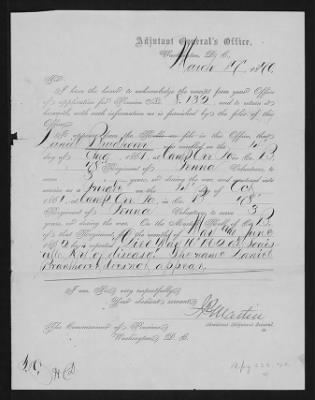 Adjutant General's Office,
Washington, D. C.,
March 17", 1870.
Sir:
I have the honor to acknowledge the receipt from your Office
of application for Pension No. 8.132, and to return it
herewith, with such information as is furnished by the files of this
Office.
It appears from the Rolls on file in this Office, that
Daniel was enrolled on the
day of Aug 1861, at Camp in Co. B,
78 Regiment of Penna Volunteers, to
serve 3 years, or during the war, and mustered into
service as a Private on the day of Oct
1861, at Camp, in Co. B 78"
Regiment of Penna Volunteers, to serve 3
years, or during the war. On the Muster Roll of Co. B
of that Regiment, for the months of May and June
1862, he is reported Died May 10" 1862 at Louis-
ville Ky. of disease. The name Daniel
does not appear.
I am, Sir, very respectfully,
Your obedient servant,
Assistant Adjutant General.
The Commissioner of Pensions,
Washington, D. C.